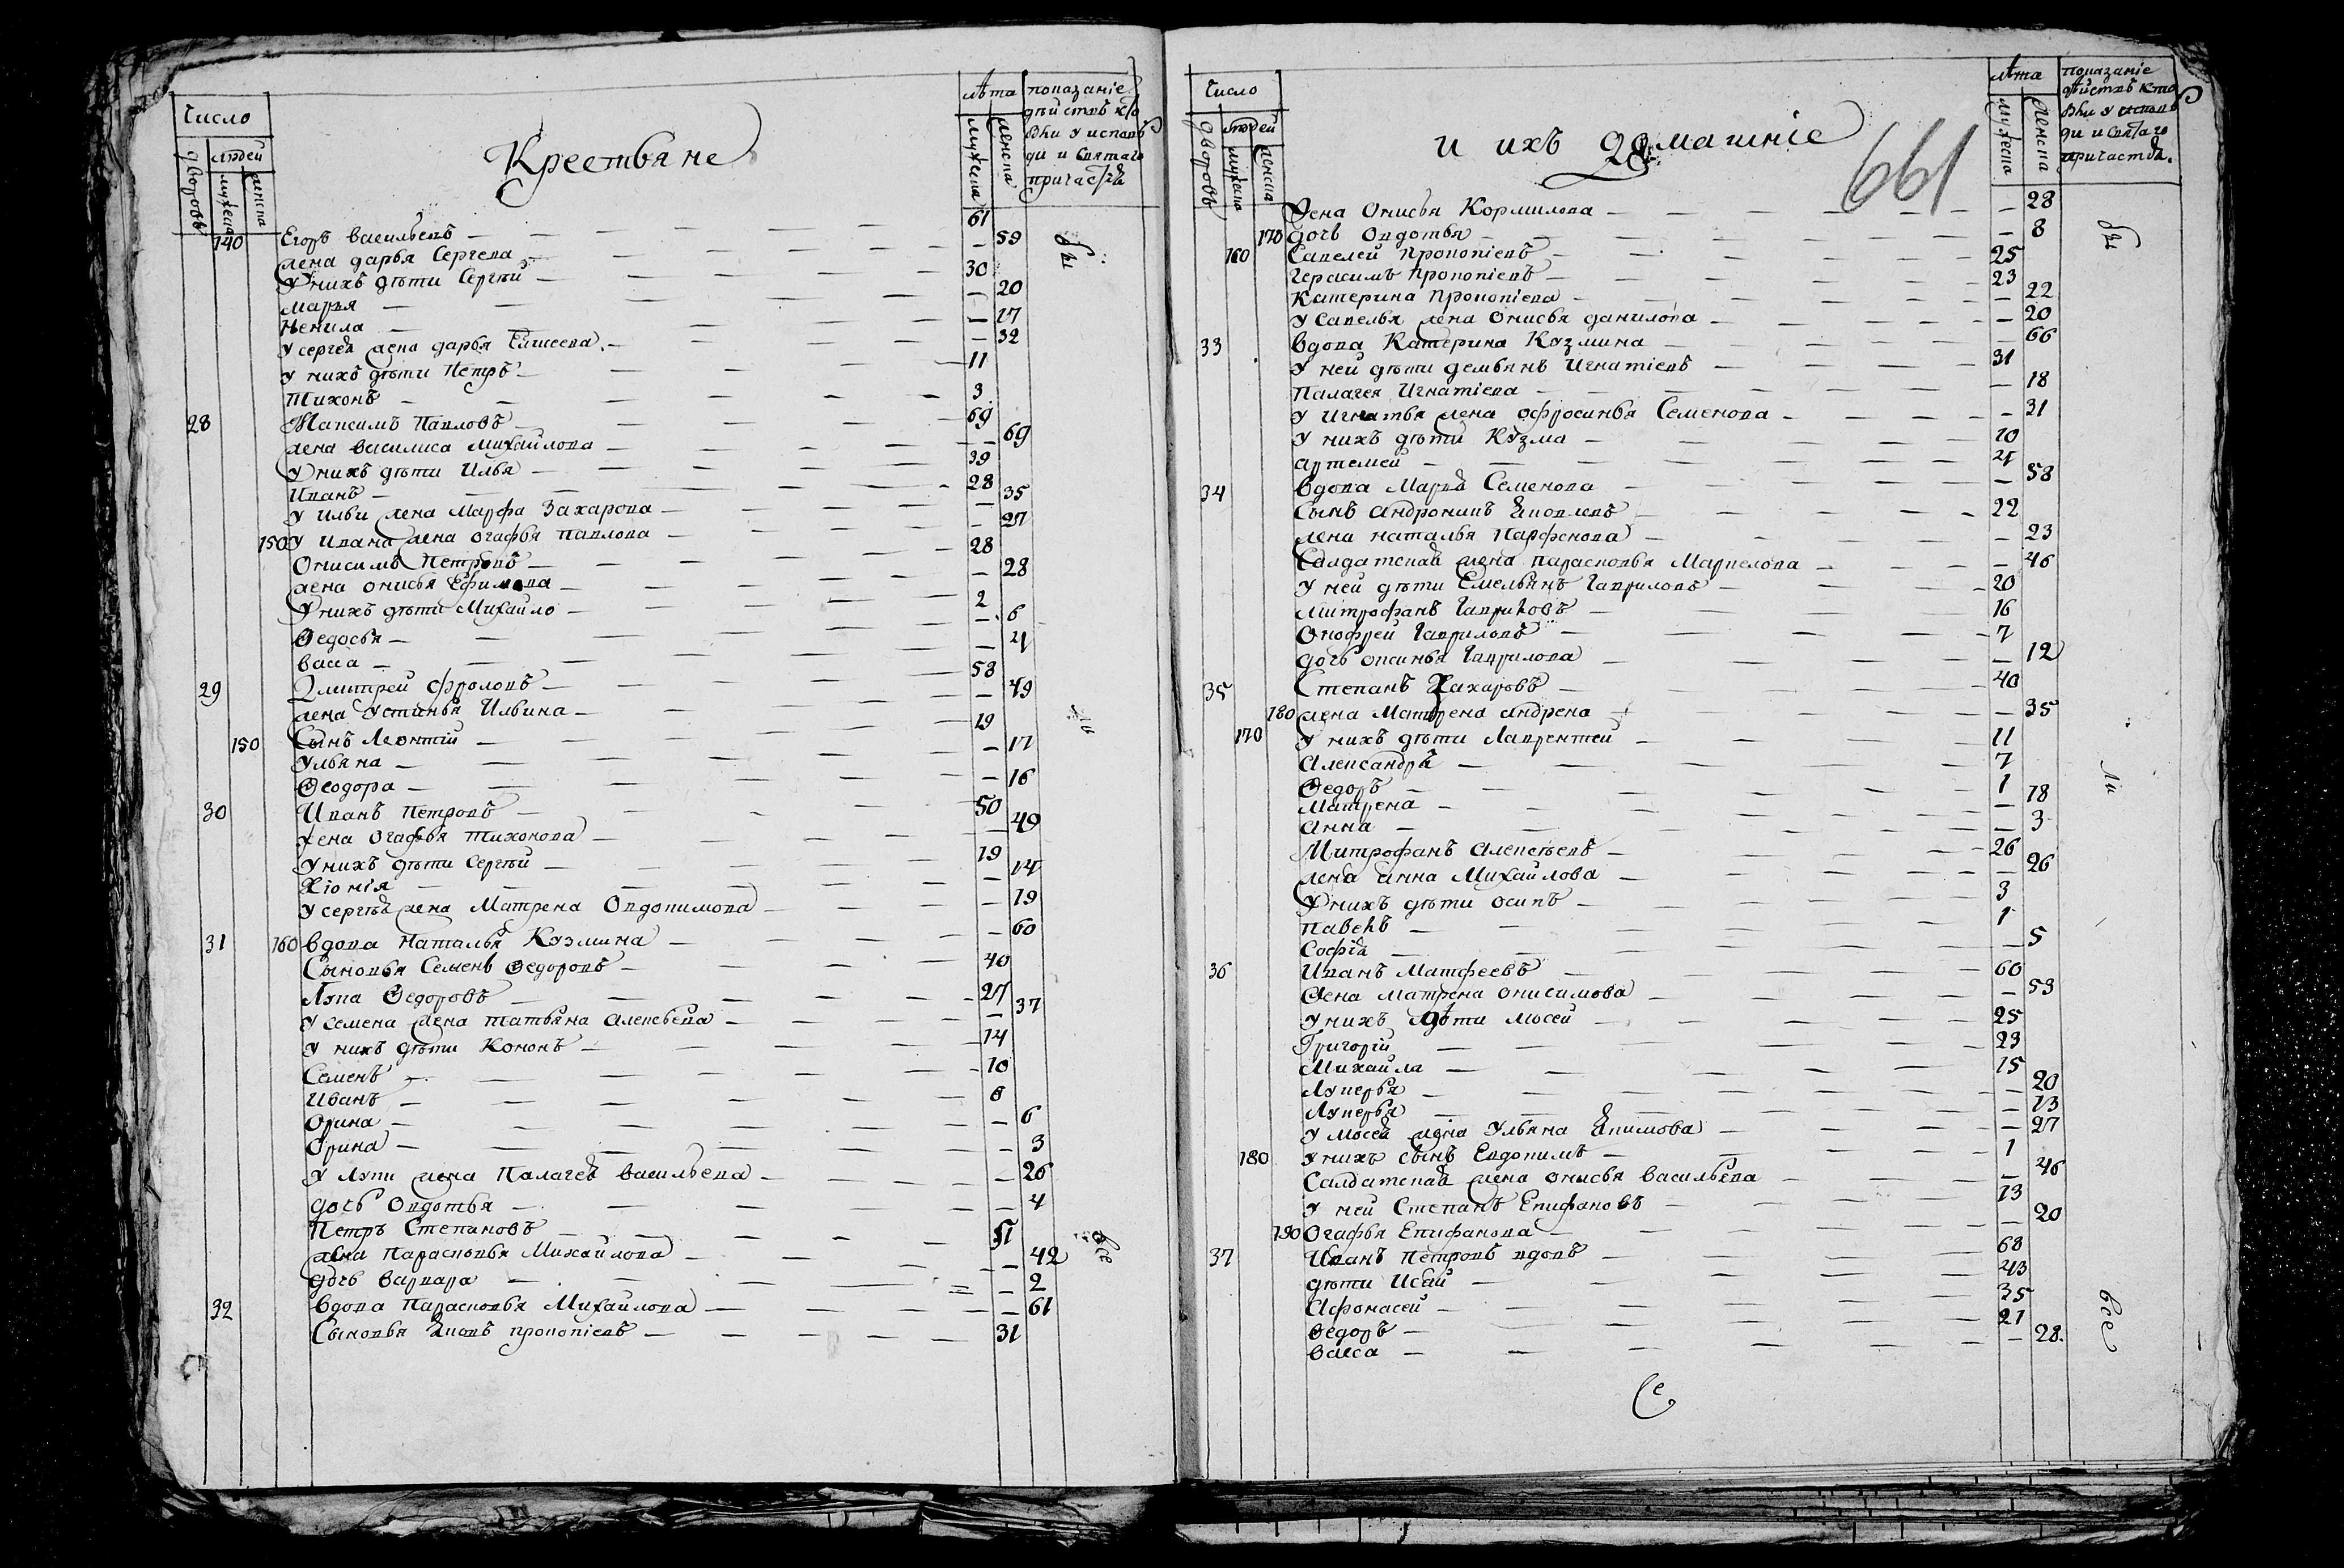 Число
людей
дворовъ
мужеска
женска
Крестьяне
лѣта
мужеска
женска
показаніе
дѣйствъ кто
былъ у испов
ди и святаго
причаст҃їя
140 Егоръ васильевъ — 61
жена дарья Сергева — 59
У нихъ дѣти Сергѣй — 30
марья — 20
Ненила — 17
У сергѣя жена дарья Елисеева — 32
У нихъ дѣти Петръ — 11
Тихонъ — 3
28 Максимъ Павловъ — 69
жена василиса михайлова — 69
У нихъ дѣти Илья — 39
Иванъ — 28
У Ильи жена Марфа Захарова — 35
150 У Ивана жена Огафья павлова — 27
Онисимъ Петровъ — 28
жена онисья Ефимова — 28
У нихъ дѣти Михайло — 2
Ѳедосья — 6
васса — 4
29 Дмитрей фроловъ — 58
жена Устинья Ильина — 49
150 Сынъ Леонтій — 19
Ульяна — 17
Ѳеодора — 16
30 Иванъ Петровъ — 50
жена Огафья тихонова — 49
У нихъ дѣти Сергѣй — 19
Хіонія — 14
У сергѣя жена Матрена Овдокимова — 19
31 160 вдова наталья Кузмина — 60
Сыновья Семенъ Ѳедоровъ — 40
Лука Ѳедоровъ — 27
У семена жена татьяна алексьева — 37
У нихъ дѣти Кононъ — 14
Семенъ — 10
Иванъ — 8
Орина — 6
Орина — 3
У Луки жена Палагея васильева — 26
дочь Овдотья — 4
Петръ Степановъ — 51
жена парасковья Михайлова — 42
дочь варвара — 2
32 вдова парасковья Михайлова — 61
Сыновья Яковъ прокопіевъ — 31
бы
ли
все
Число
людей
дворовъ
мужеска
женска
и ихъ домашніе
661
лѣта
мужеска
женска
показаніе
дѣйствъ кто
былъ у испов
ди и свя҃таго
причастїя.
Жена Онисья Кормилова — 28
170 дочь Овдотья — 8
160 Савелей Прокопіевъ — 25
Герасимъ прокопіевъ — 23
Катерина прокопіева — 22
У Савелья жена Онисья данилова — 20
33 вдова Катерина Кузмина — 66
У ней дѣти демьянъ Игнатіевъ — 31
палагея Игнатіева — 18
У Игнатья жена офросинья Семенова — 31
У нихъ дѣти Кузма — 10
артемей — 4
34 вдова Марья Семенова — 58
Сынъ андроникъ Яковлевъ — 22
жена наталья Парфенова — 23
Салдатская жена парасковья Маркелова — 46
У ней дѣти Емельянъ Гавриловъ — 20
митрофанъ Гавриловъ — 16
Онофрей Гавриловъ — 7
дочь оксинья Гаврилова — 12
35 Степанъ Захаровъ — 40
180 жена Матрена андрева — 35
170 У нихъ дѣти Лаврентей — 11
Александръ — 7
Ѳедоръ — 1
Матрена — 18
анна — 3
Митрофанъ алексѣевъ — 26
жена анна Михайлова — 26
У нихъ дѣти осипъ — 3
павелъ — 1
Софія — 5
36 Иванъ Матфеевъ — 60
Жена матрена онисимова — 53
У нихъ дѣти мосей — 25
Григорій — 23
Михайла — 15
Лукерья — 20
Лукерья — 13
У Мосея жена Ульяна Якимова — 27
180 У нихъ сынъ Евдокимъ — 1
Салдатская жена онисья васильева — 46
У ней Степанъ Епифановъ — 13
190 Огафья Епифанова — 20
37 Иванъ Петровъ вдовъ — 68
дѣти Исай — 43
Афонасей — 35
Ѳедоръ — 21
васса — 28.
бы
ли
все